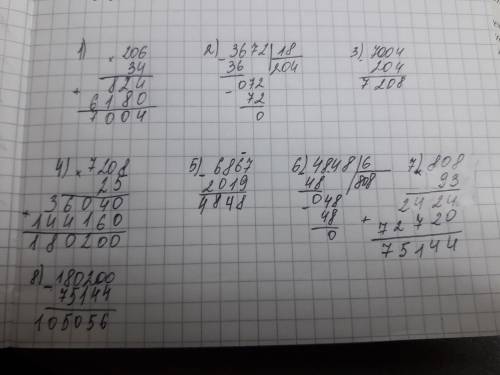 1) × 206
34
+ 824
6180
7004
2) - 3672 | 18
36 204
- 072
72
0
3) - 7004
204
7208
4) × 7208
25
+ 36040
144160
180200
5) - 6867
2019
4848
6) - 4848 | 6
48 808
- 048
48
0
7) × 808
93
+ 2424
72720
75144
8) - 180200
75144
105056